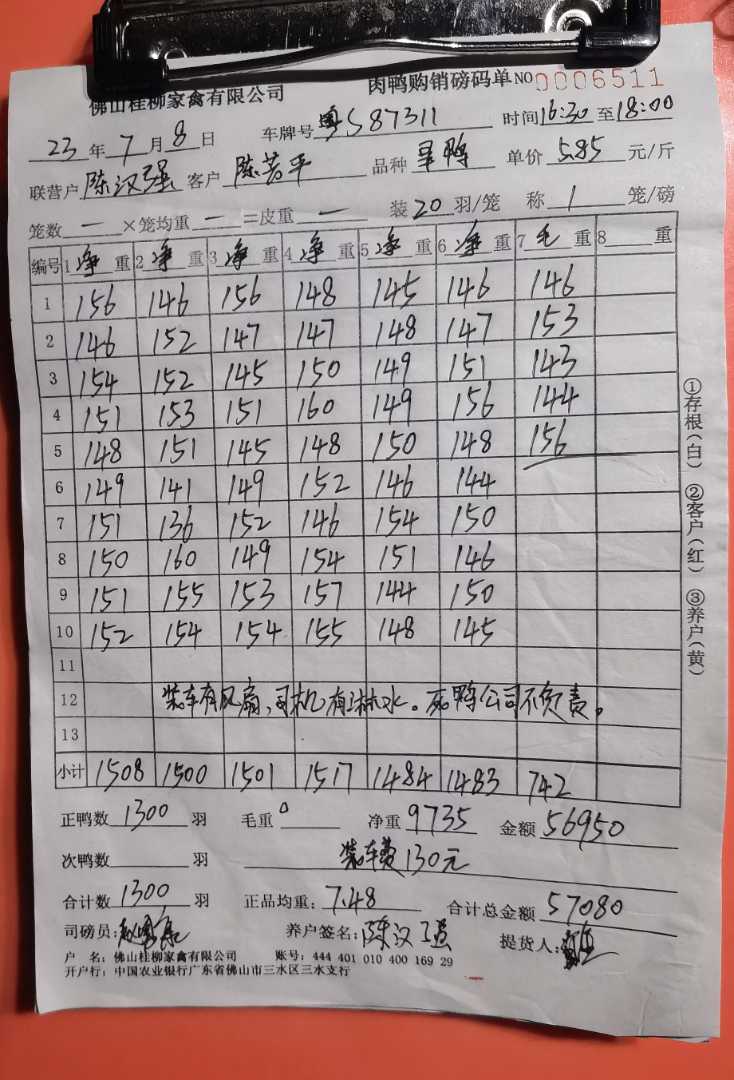 佛山桂柳家禽有限公司 肉鸭购销磅码单 NO 0006511
23 年 7 月 8 日 车牌号 粤S87311 时间 16:30 至 18:00
联营户 陈汉强 客户 陈若平 品种 旱鸭 单价 5.85 元/斤
笼数 一 ×笼均重 一 =皮重 一 装 20 羽/笼 称 1 笼/磅
编号 1 净 重 2 净 重 3 净 重 4 净 重 5 净 重 6 净 重 7 毛 重 8 重
1 156 146 156 148 145 146 146
2 146 152 147 147 148 147 153
3 154 152 145 150 149 151 143
4 151 153 151 160 149 156 144
5 148 151 145 148 150 148 156
6 149 141 149 152 146 144
7 151 136 152 146 154 150
8 150 160 149 154 151 146
9 151 155 153 157 144 150
10 152 154 154 155 148 145
11
12 装车有风扇,司机有淋水。死鸭公司不负责。
13
小计 1508 1500 1501 1517 1484 1483 742
正鸭数 1300 羽 毛重 0 净重 9735 金额 56950
次鸭数 羽 装车费130元
合计数 1300 羽 正品均重: 7.48 合计总金额 57080
司磅员: 养户签名: 陈汉强 提货人:
户 名: 佛山桂柳家禽有限公司 账号: 444 401 010 400 169 29
开户行: 中国农业银行广东省佛山市三水区三水支行
①存根(白) ②客户(红) ③养户(黄)